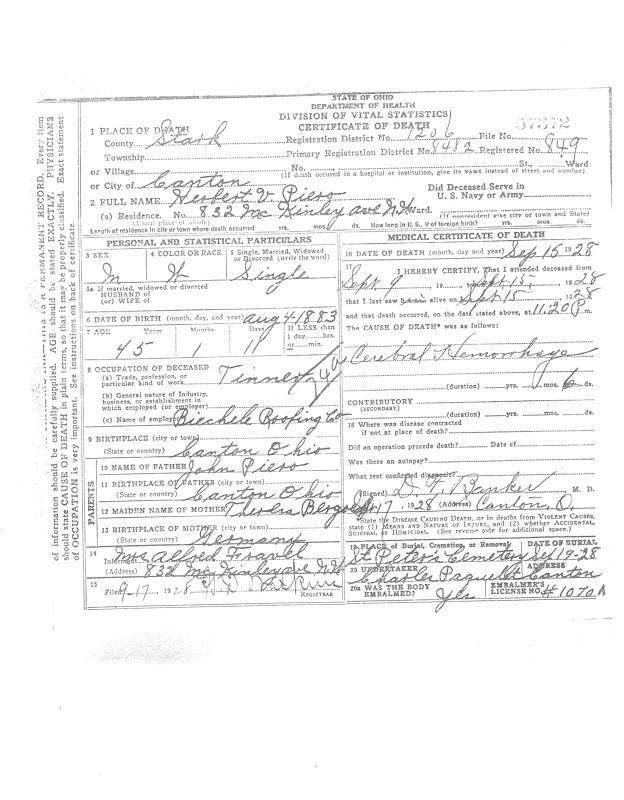 STATE OF OHIO
DEPARTMENT OF HEALTH
DIVISION OF VITAL STATISTICS
CERTIFICATE OF DEATH
57372
1 PLACE OF DEATH
County Stark Registration District No. 1206 File No.
Township Primary Registration District No. 8482 Registered No. 849
or Village No. St., Ward
(If death occurred in a hospital or institution, give its NAME instead of street and number)
or City of Canton
2 FULL NAME Herbert V. Piero Did Deceased Serve in U. S. Navy or Army
(a) Residence. No. 832 Mc Kinley ave N.W. Ward.
(Usual place of abode) (If nonresident give city or town and State)
Length of residence in city or town where death occurred yrs. mos. ds. How long in U. S., if of foreign birth? yrs. mos. ds.
PERSONAL AND STATISTICAL PARTICULARS
3 SEX 4 COLOR OR RACE 5 Single, Married, Widowed or Divorced (write the word)
M W Single
5a If married, widowed or divorced
HUSBAND of
(or) WIFE of
6 DATE OF BIRTH (month, day, and year) Aug 4 1883
7 AGE Years Months Days If LESS than
1 day hrs.
or min.
45 1 11
8 OCCUPATION OF DECEASED
(a) Trade, profession, or
particular kind of work Tinner
(b) General nature of Industry,
business, or establishment in
which employed (or employer)
(c) Name of employer Biechele Roofing Co
9 BIRTHPLACE (city or town)
(State or country) Canton Ohio
PARENTS
10 NAME OF FATHER John Piero
11 BIRTHPLACE OF FATHER (city or town)
(State or country) Canton Ohio
12 MAIDEN NAME OF MOTHER Theresa
13 BIRTHPLACE OF MOTHER (city or town)
(State or country) Germany
14
Informant Mrs Alfred Fravel
(Address) 832 Mc Kinley ave N.W.
15
Filed 9-17, 1928 REGISTRAR
MEDICAL CERTIFICATE OF DEATH
16 DATE OF DEATH (month, day and year) Sep 15 1928
17
I HEREBY CERTIFY, That I attended deceased from
Sept 9, 19, to Sept 15, 1928
that I last saw him alive on Sept 15, 1928
and that death occurred, on the date stated above, at 11:20 P m.
The CAUSE OF DEATH* was as follows:
Cerebral Hemorrhage
(duration) yrs. mos. 6 ds.
CONTRIBUTORY
(SECONDARY)
(duration) yrs. mos. ds.
18 Where was disease contracted
if not at place of death?
Did an operation precede death? Date of
Was there an autopsy?
What test confirmed diagnosis?
(Signed) D. F. Banker M. D.
Sept 17, 1928 (Address) Canton, O.
*State the DISEASE CAUSING DEATH, or in deaths from VIOLENT CAUSES,
state (1) MEANS AND NATURE OF INJURY, and (2) whether ACCIDENTAL,
SUICIDAL or HOMICIDAL. (See reverse side for additional space.)
19 PLACE of Burial, Cremation, or Removal DATE OF BURIAL
St Peters Cemetery Sep 19-28
20 UNDERTAKER ADDRESS
Charles Paquelet Canton
20a WAS THE BODY
EMBALMED? Yes EMBALMER'S
LICENSE NO. #1070A
PERMANENT RECORD. Every item
of information should be carefully supplied. AGE should be stated EXACTLY. PHYSICIANS
should state CAUSE OF DEATH in plain terms, so that it may be properly classified. Exact statement
of OCCUPATION is very important. See instructions on back of certificate.